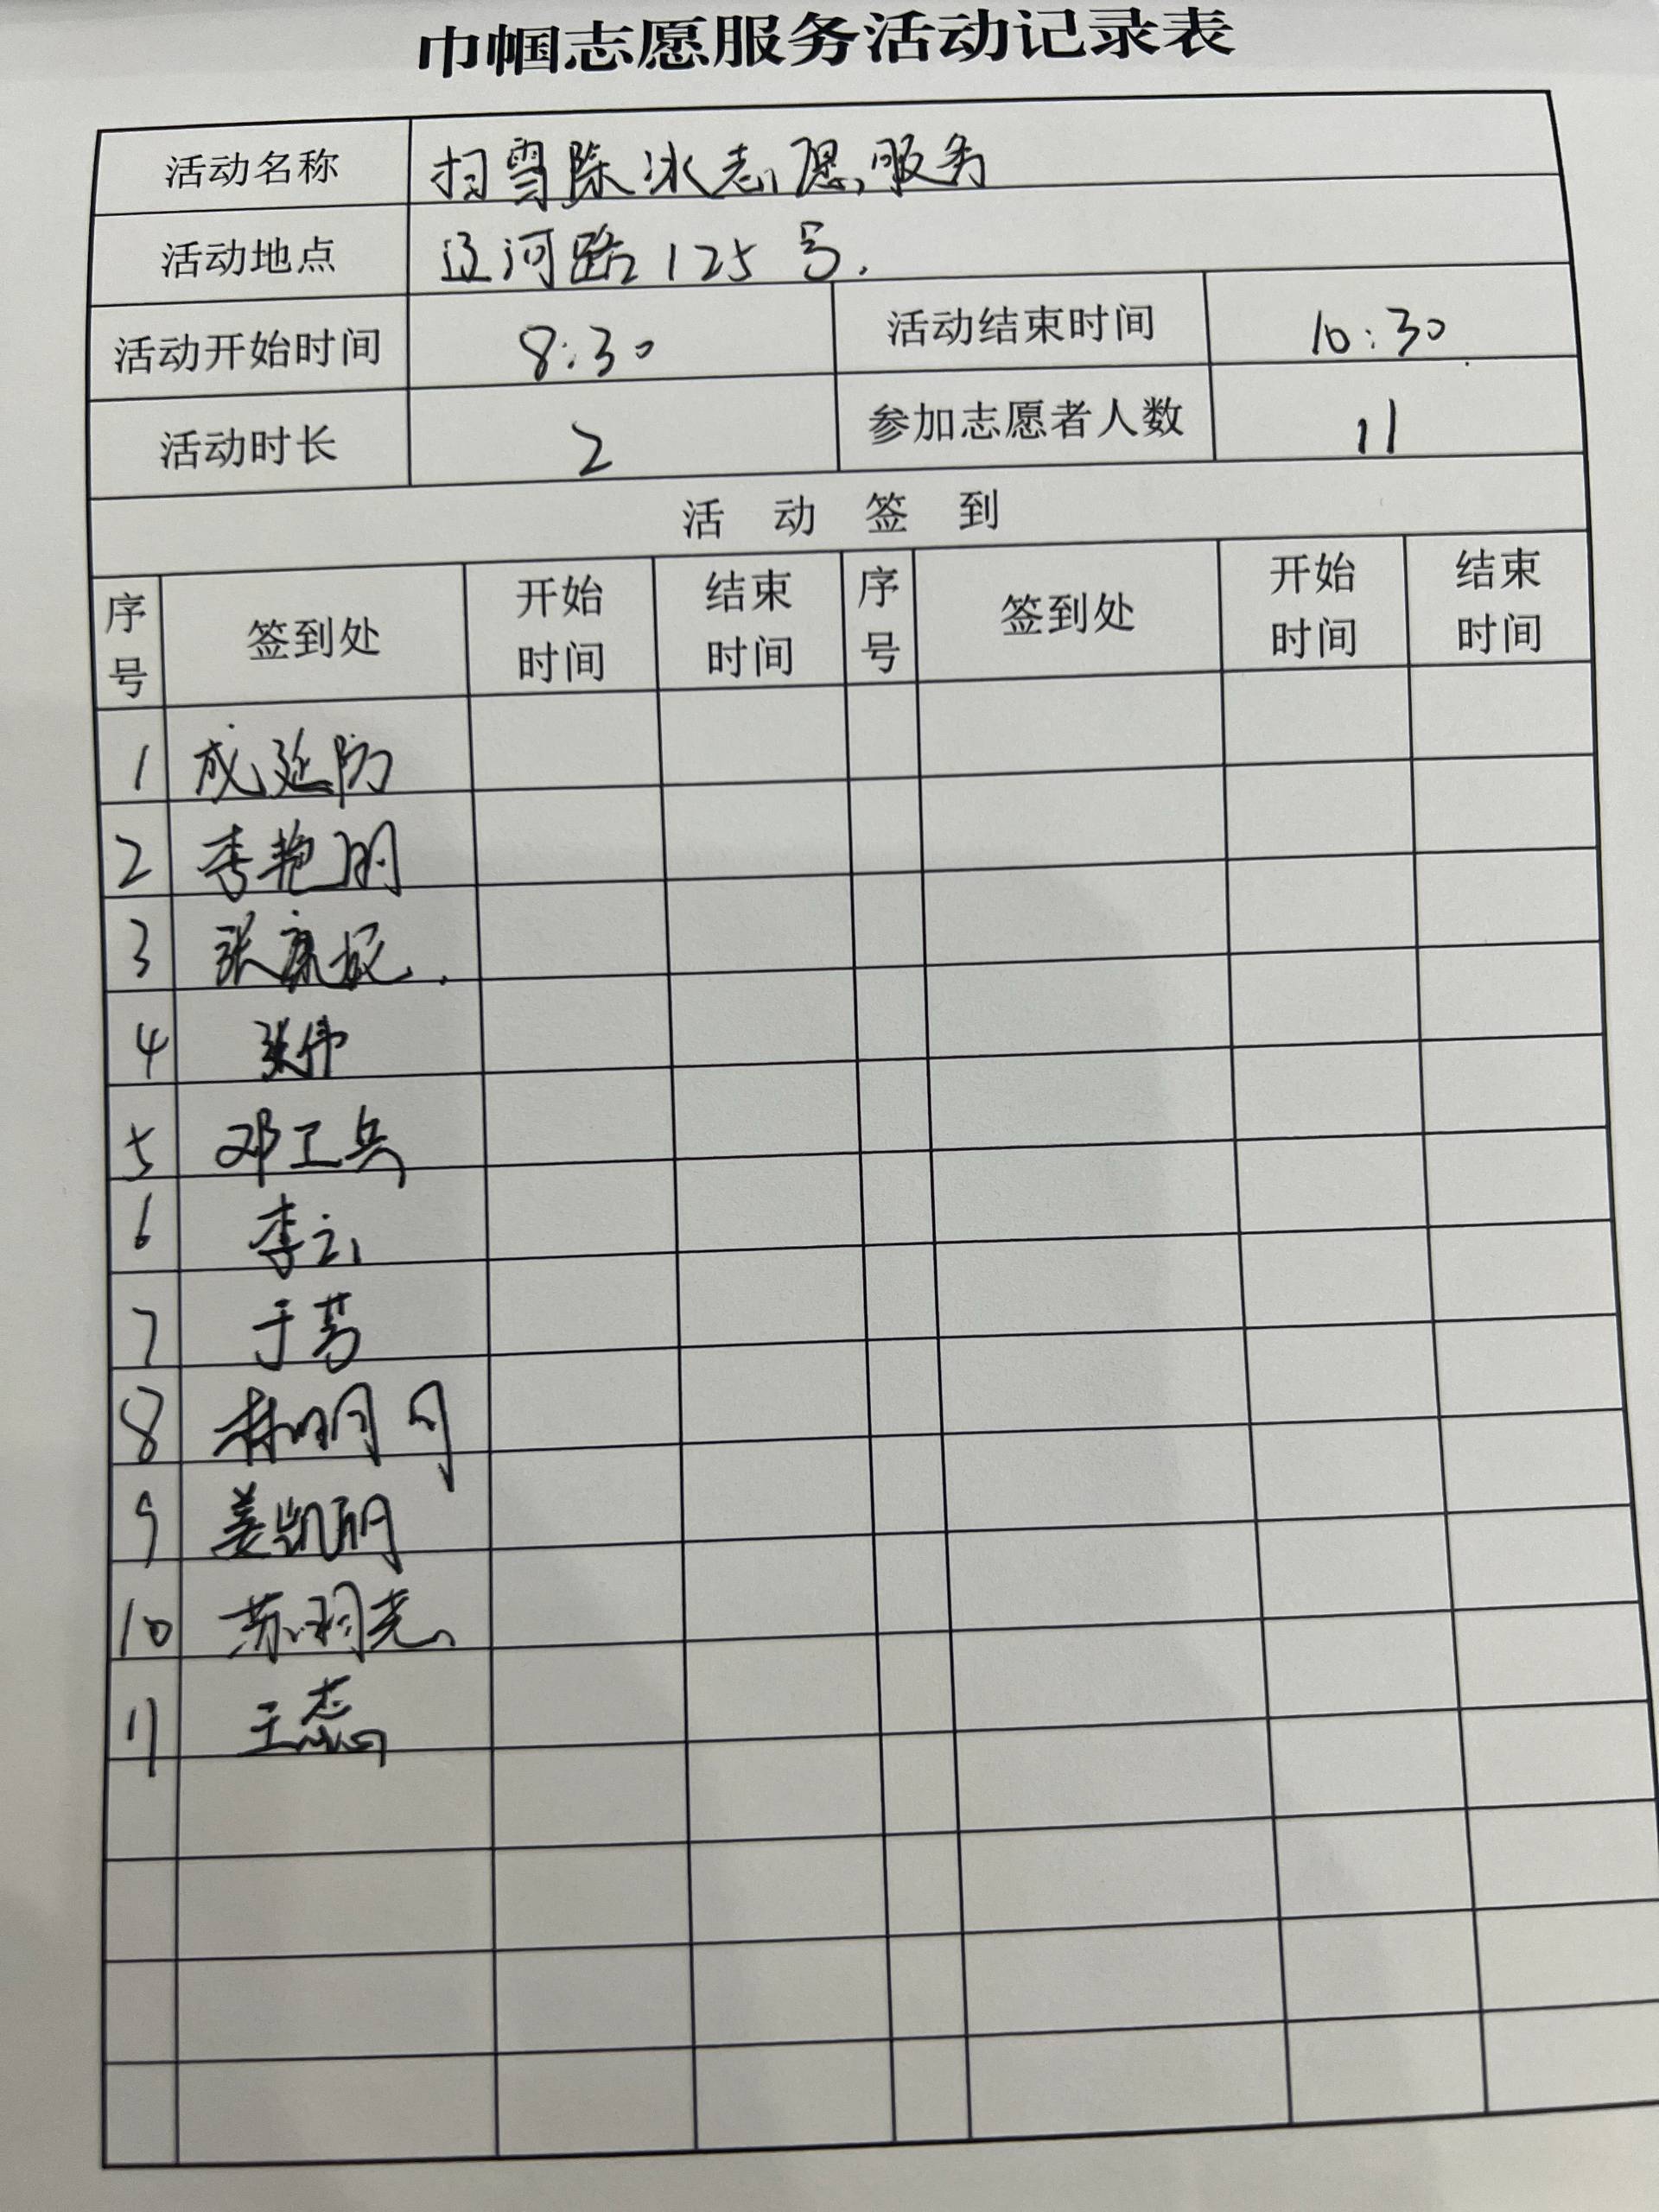 巾帼志愿服务活动记录表
活动名称 扫雪除冰志愿服务
活动地点 辽河路125号.
活动开始时间 8:30 活动结束时间 10:30
活动时长 2 参加志愿者人数 11
活动签到
序号 签到处 开始时间 结束时间 序号 签到处 开始时间 结束时间
1 成延防
2 李艳明
3 张康
4 张伟
5 邓卫兵
6 李云
7 于芳
8 林明月
9 姜凯丽
10 苏羽
11 王蕊